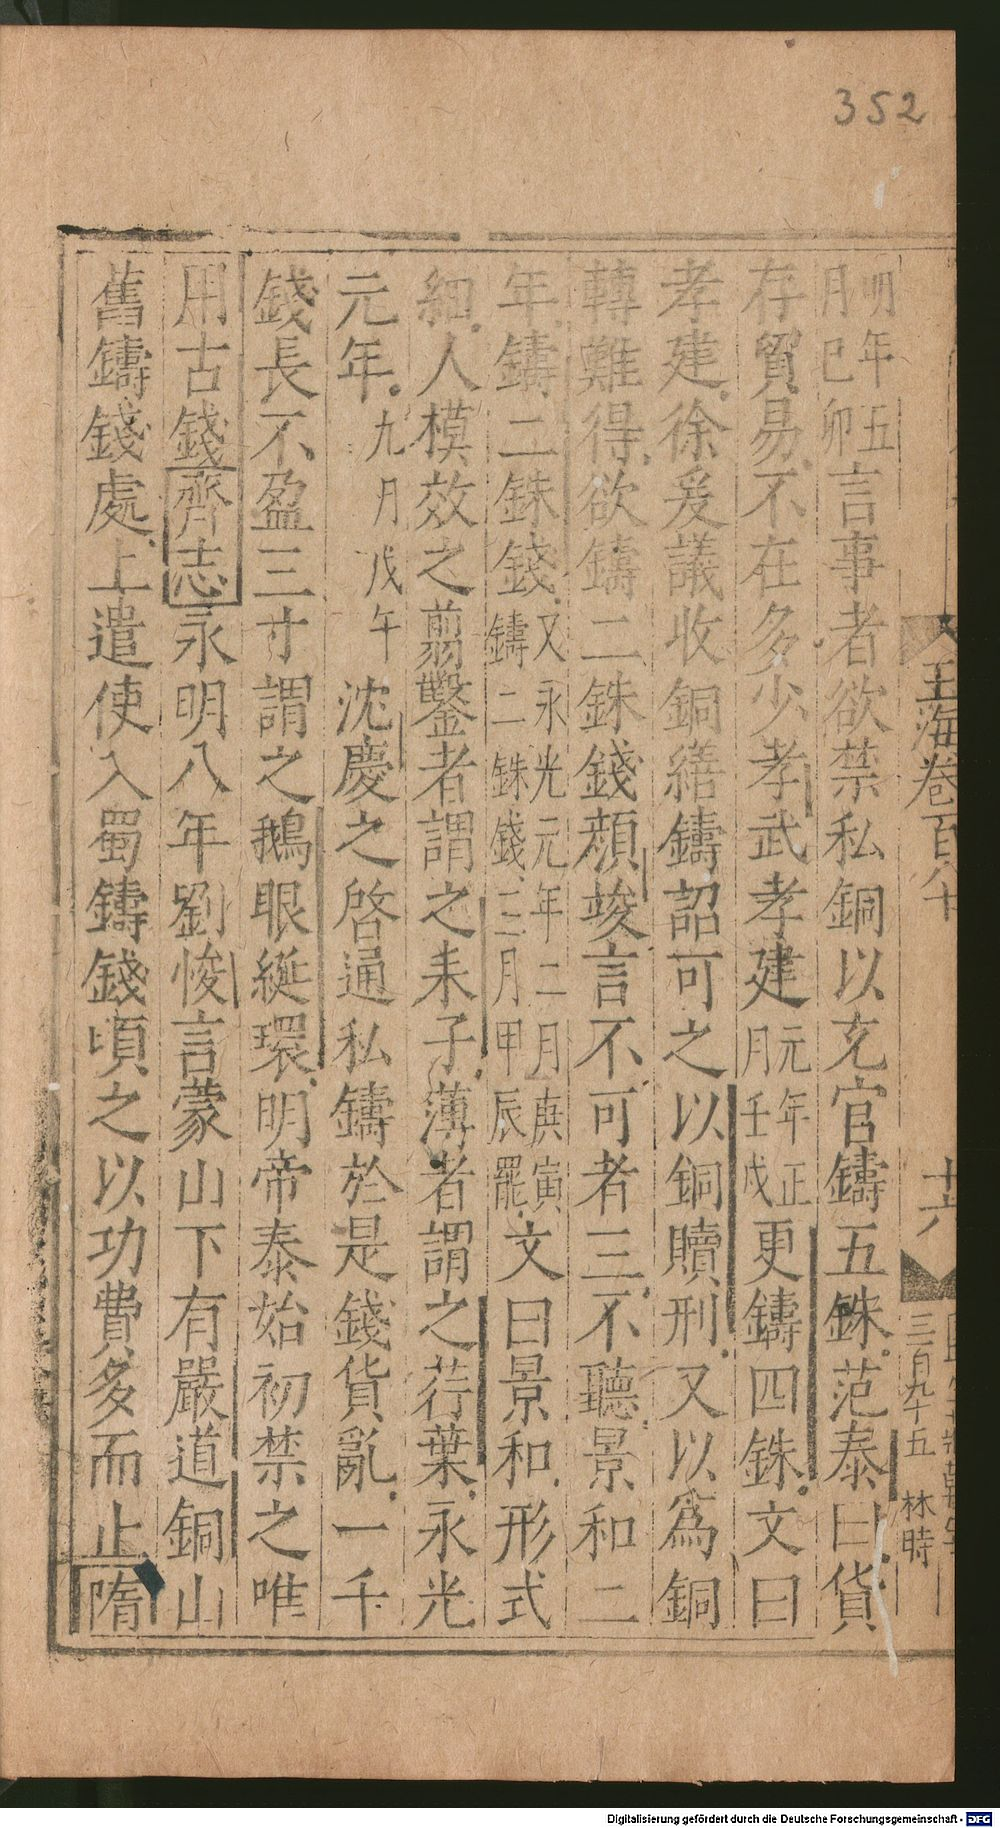 352
玉海卷百八十
十六
三百九十五 林時
明年五
月己卯
言事者欲禁私銅以充官鑄五銖范泰曰貨
存貿易不在多少孝武孝建
元年正
月壬戌
更鑄四銖文曰
孝建徐爰議收銅繕鑄詔可之以銅贖刑又以爲銅
轉難得欲鑄二銖錢顏竣言不可者三不聽景和二
年鑄二銖錢
又永光元年二月庚寅
鑄二銖錢三月甲辰罷
文曰景和形式
細人模效之翦鑿者謂之耒子薄者謂之荇葉永光
元年
九月戊午
沈慶之啓通私鑄於是錢貨亂一千
錢長不盈三寸謂之鵝眼綖環明帝泰始初禁之唯
用古錢齊志永明八年劉悛言蒙山下有嚴道銅山
舊鑄錢處上遣使入蜀鑄錢頃之以功費多而止隋
Digitalisierung gefördert durch die Deutsche Forschungsgemeinschaft - DFG